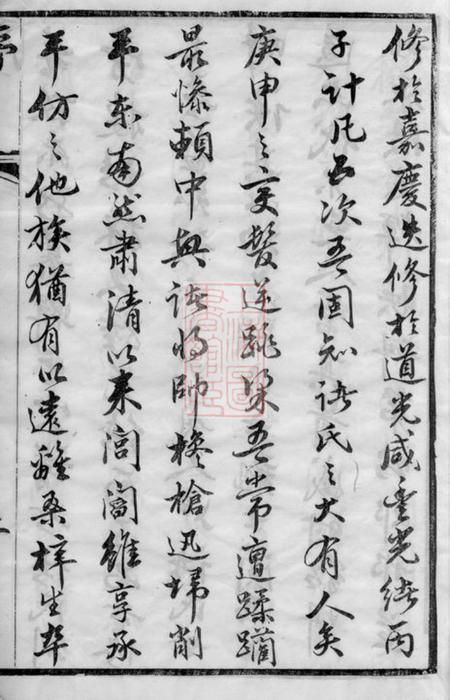 修於嘉慶迭修於道光咸豐光緒丙
子計凡五次吾固知諸氏之大有人矣
庚申之变髮逆跳梁吾常遭蹂躪
最慘賴中興諸將帥欃槍迅埽削
平東南然肅清以来閭閻雖享承
平仿之他族猶有以遠離桑梓生卒
序